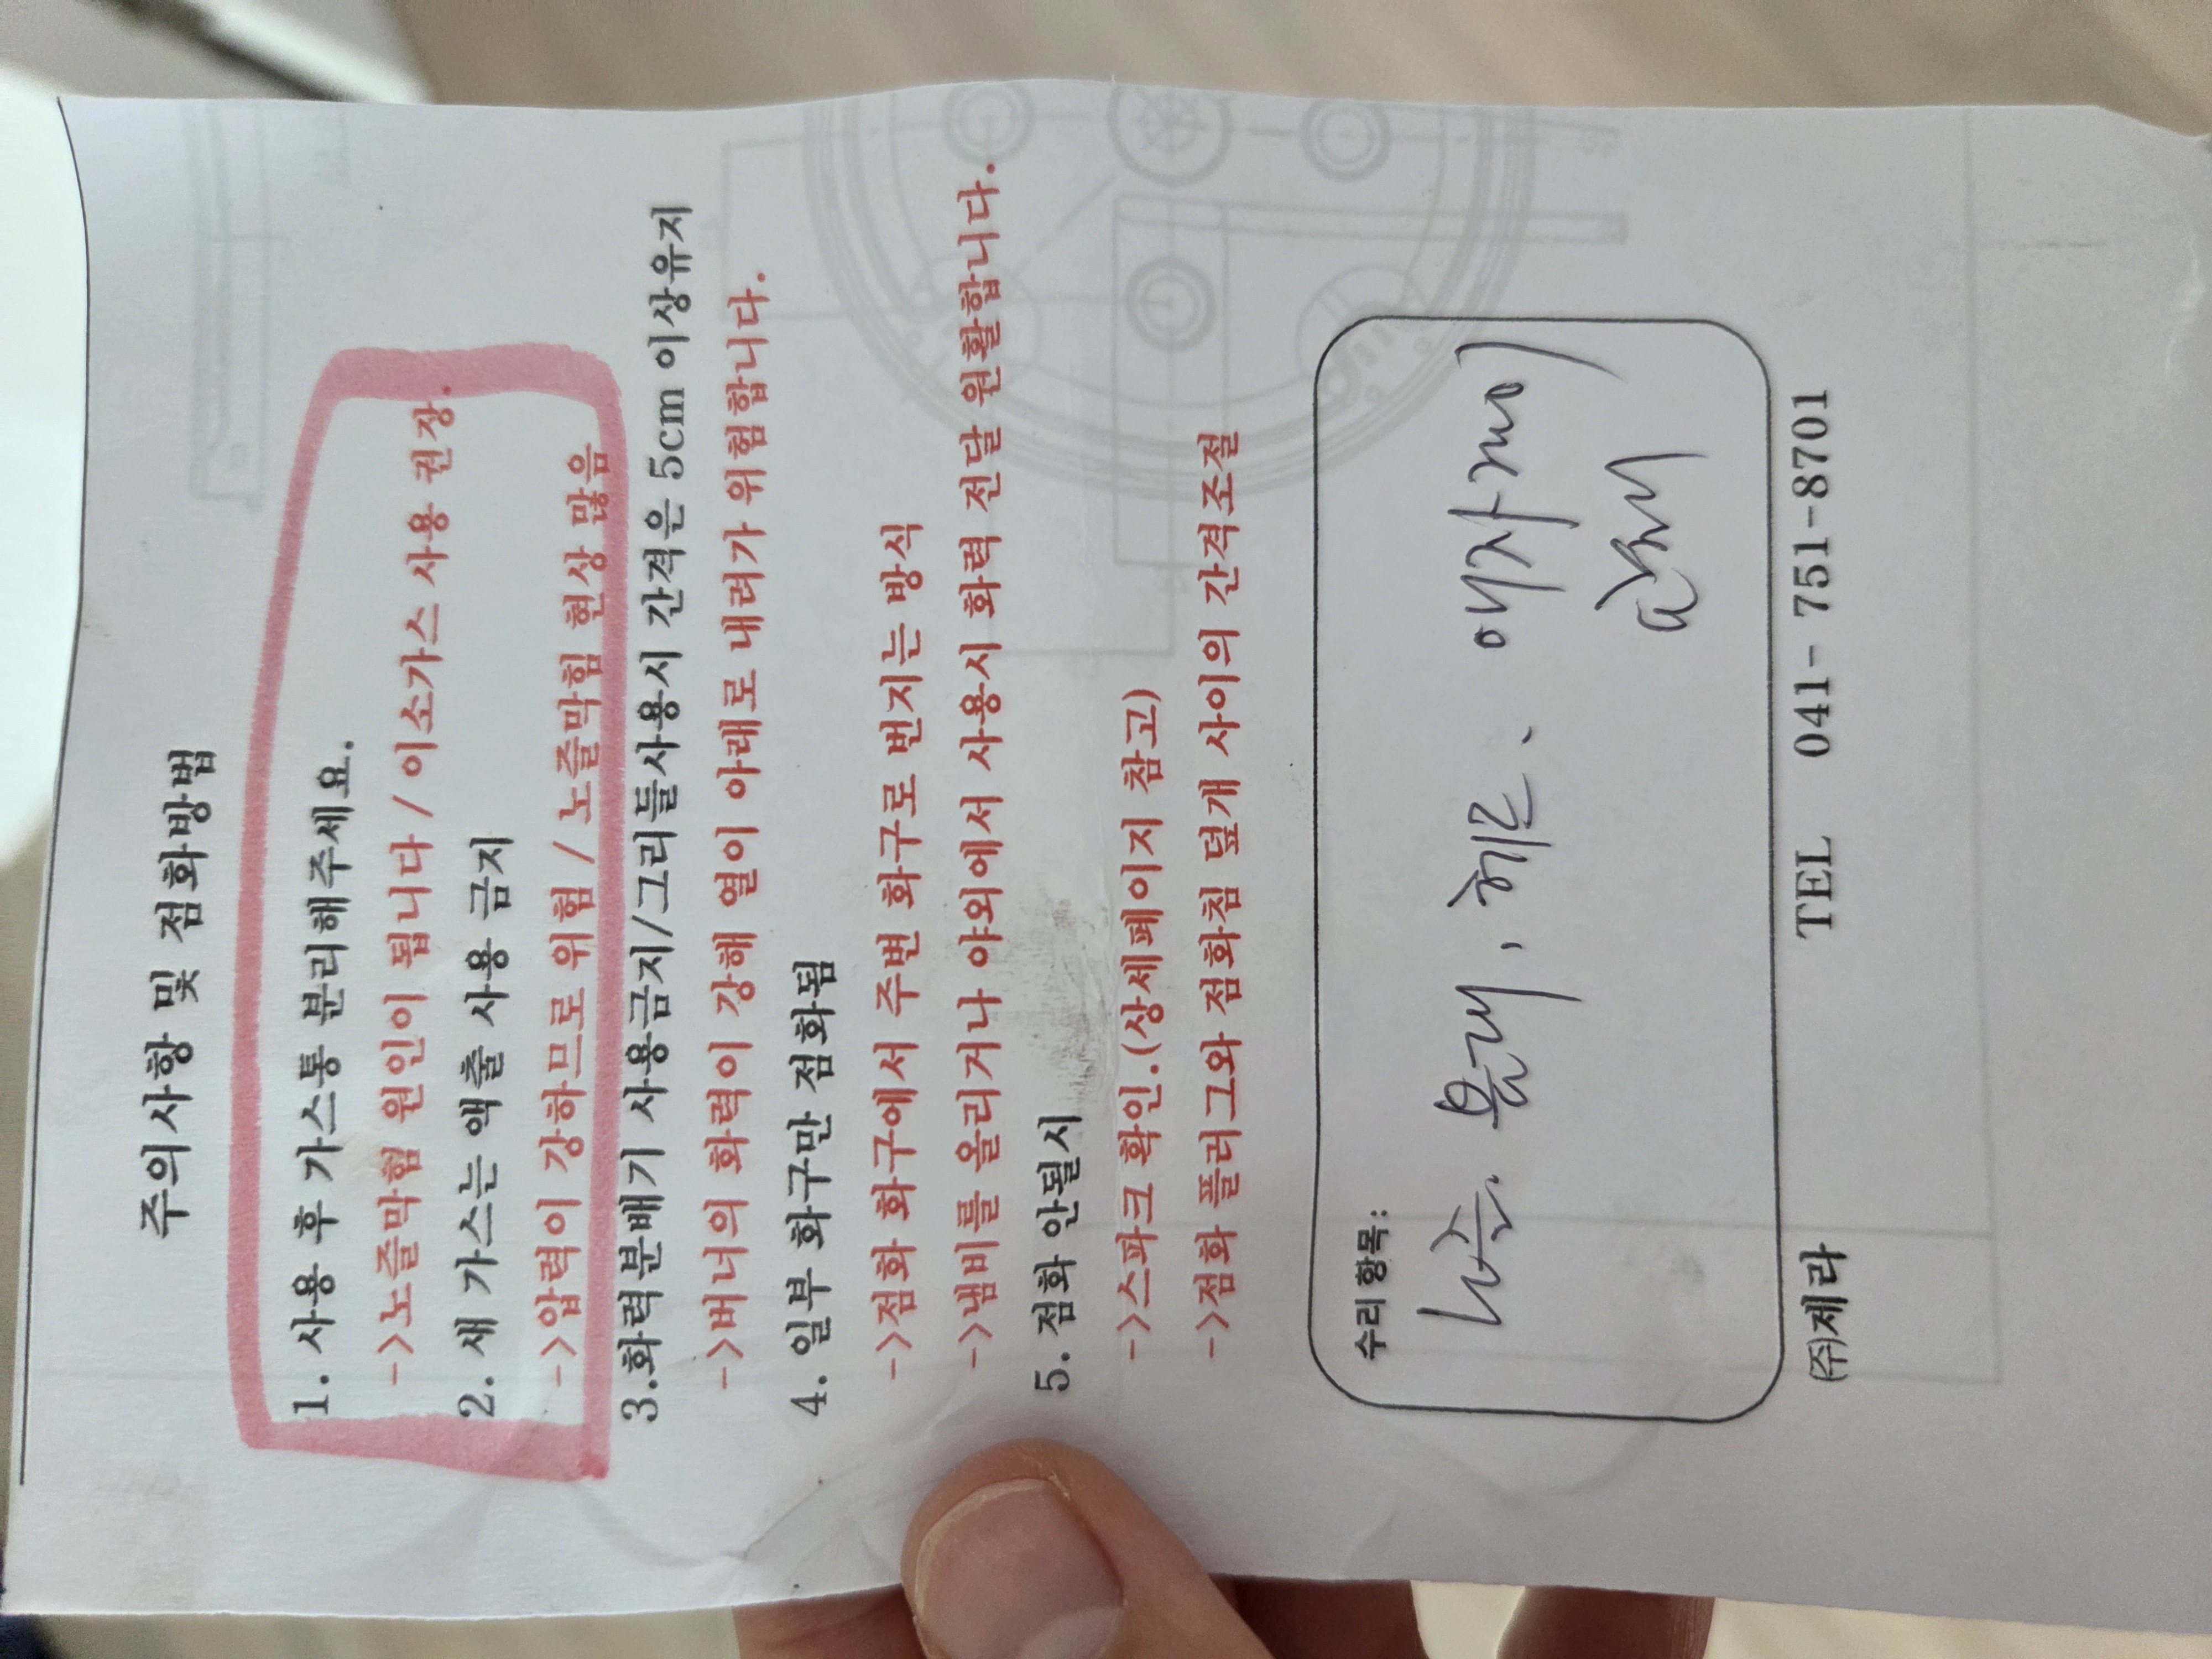 주의사항 및 점화방법
1. 사용 후 가스통 분리해주세요.
->노즐막힘 원인이 됩니다 / 이소가스 사용 권장.
2. 새 가스는 액출 사용 금지
->압력이 강하므로 위험 / 노즐막힘 현상 많음
3.화력분배기 사용금지/그리들사용시 간격은 5cm 이상유지
->버너의 화력이 강해 열이 아래로 내려가 위험합니다.
4. 일부 화구만 점화됨
->점화 화구에서 주변 화구로 번지는 방식
->냄비를 올리거나 야외에서 사용시 화력 전달 원활합니다.
5. 점화 안될시
->스파크 확인.(상세페이지 참고)
->점화 플러그와 점화침 덮개 사이의 간격조절
수리항목:
노즐.
㈜제라 TEL 041- 751-8701